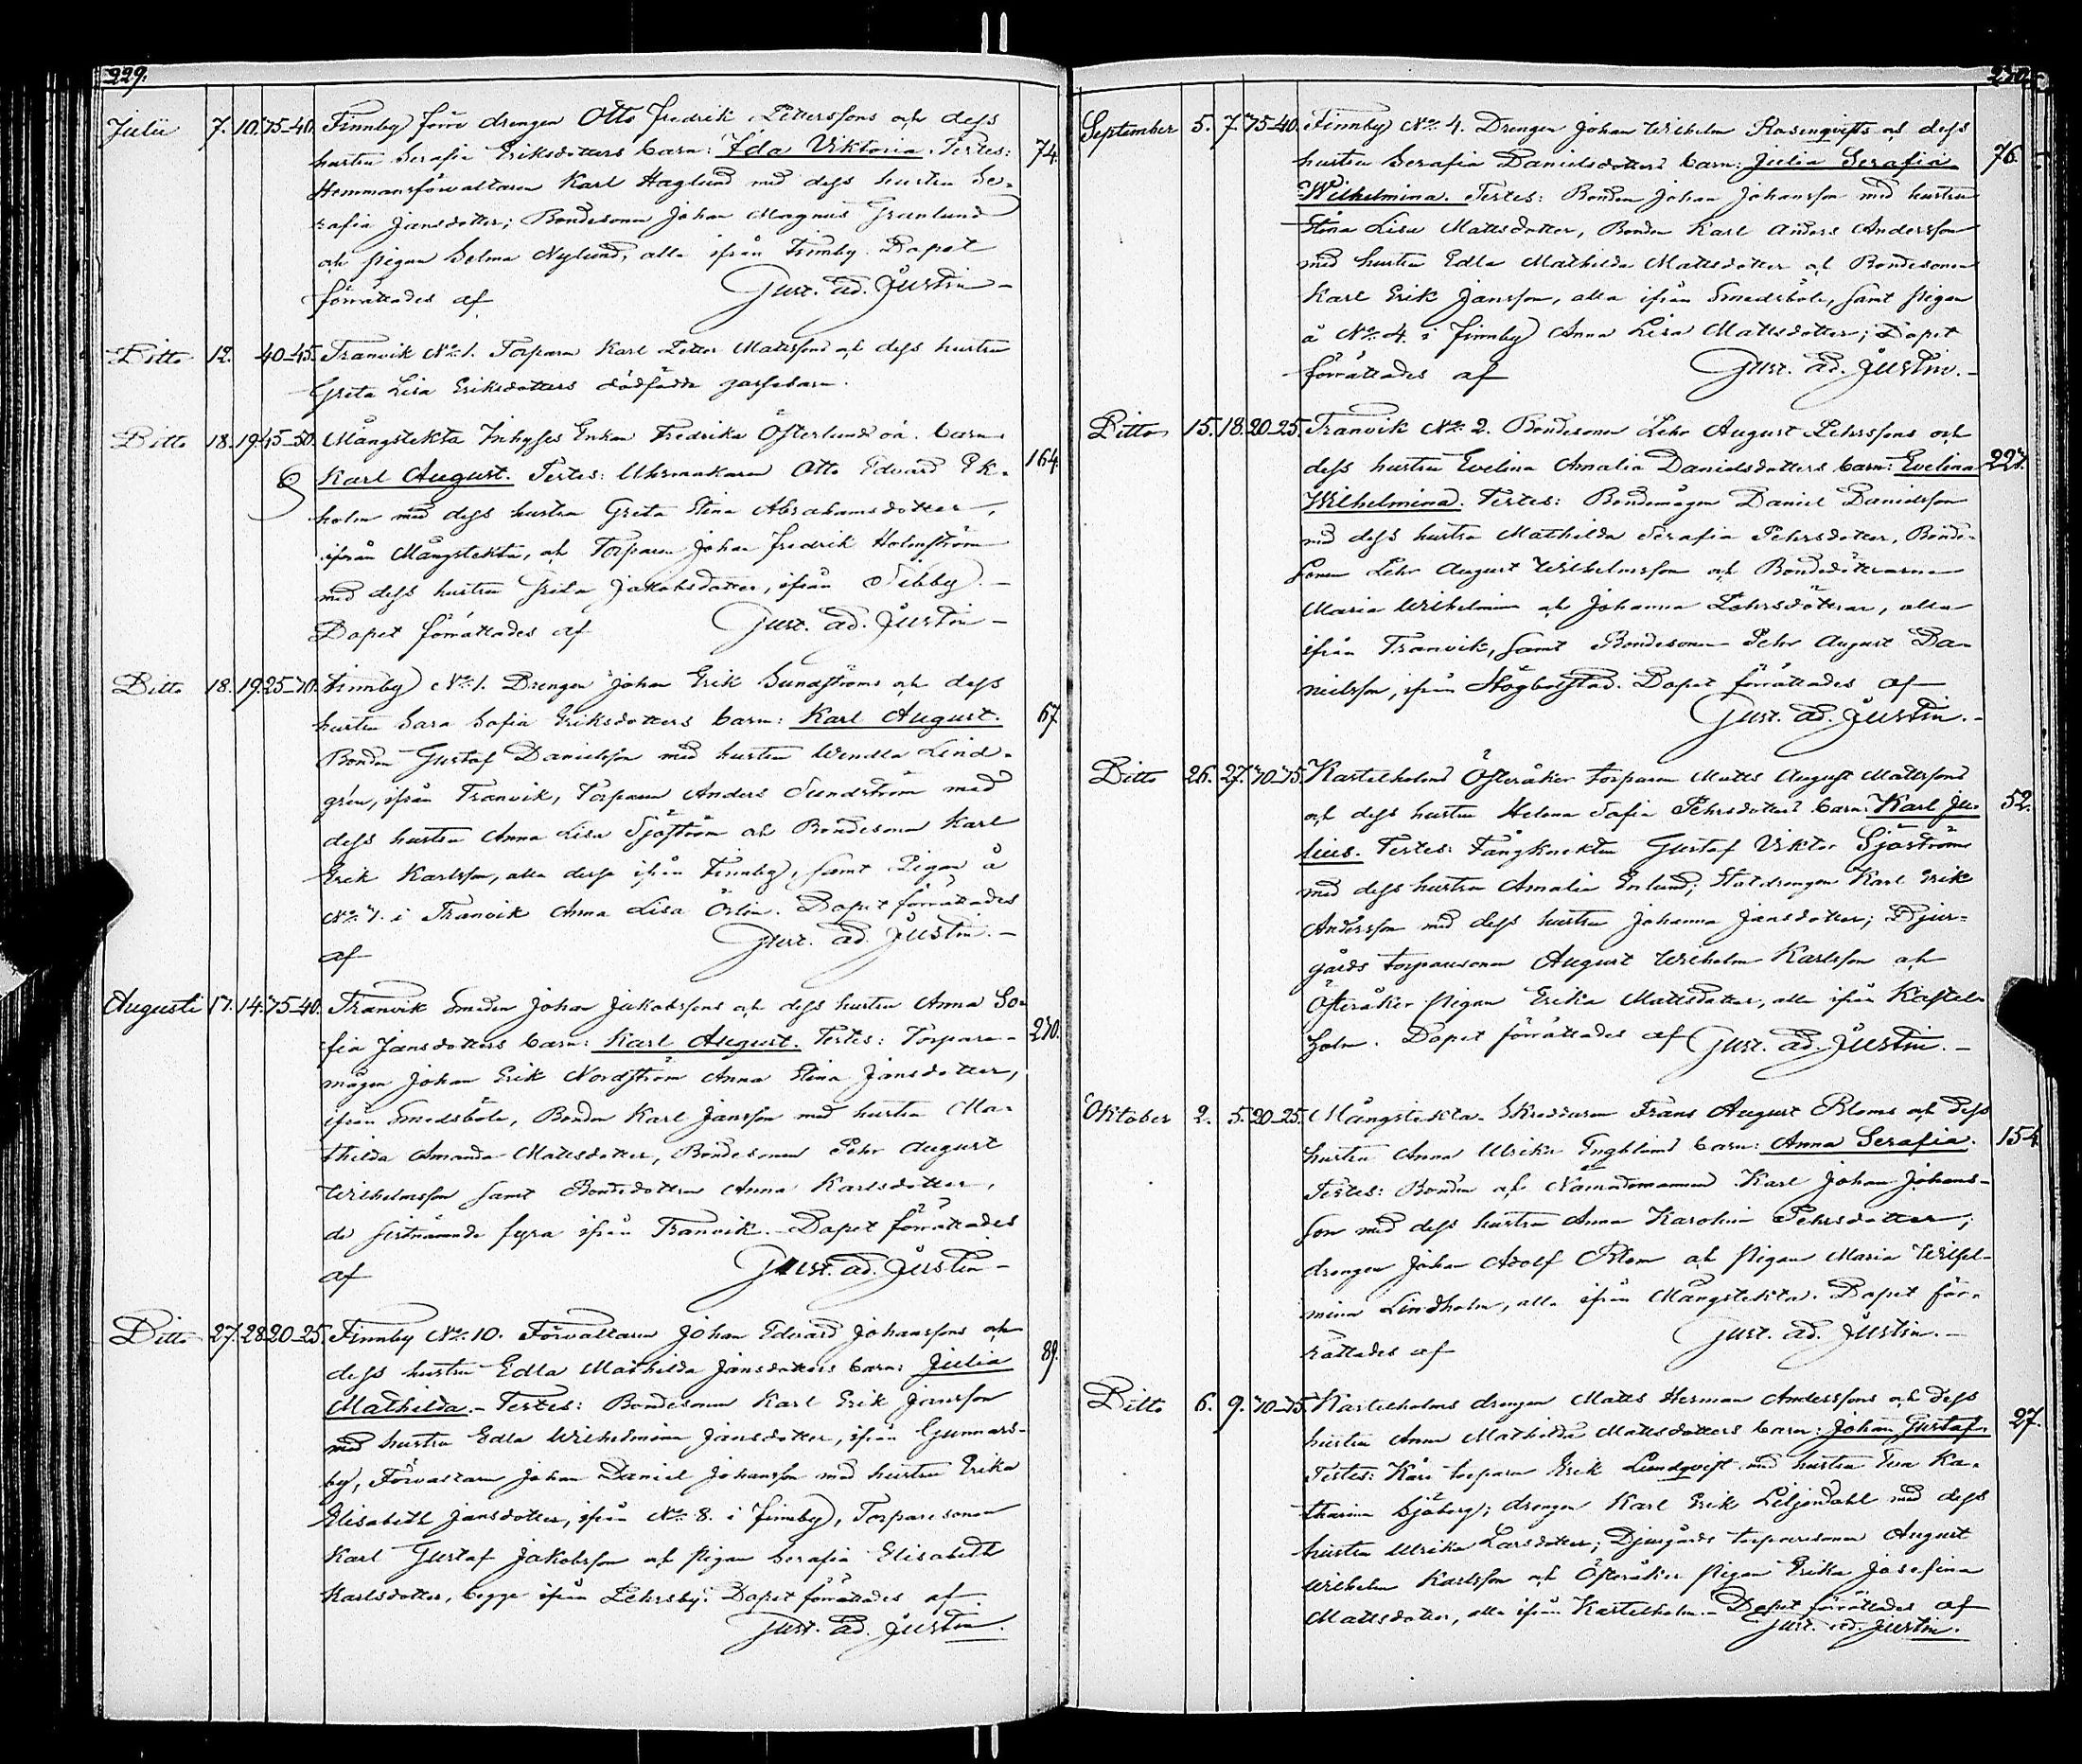 229.
Julii 7. 10. 35-40. Finnby förre drengen Otto Fredrik Pettersons och dess
hustru Serafia Eriksdotters barn: Ida Viktoria. Testes: 74.
Hemmansförvaltaren Karl Haglund med dess hustru Se-
rafia Jansdotter; Bondesonen Johan Magnus Granlund
och pigan Selma Nylund, alla ifrån Finnby. Dopet
förrättades af Gust. Ad. Justin
Ditto 12. 40-45. Tranvik No 1. Torparen Karl Petter Mattssons och dess hustru
Greta Lisa Eriksdotters dödfödde gossebarn.
Ditto 18. 19. 45-50. Mångstekta Inhyses Enkan Fredrika Österlunds oä. barn
Karl August. Testes: Uhrmakaren Otto Edvard Ek- 164.
holm med dess hustru Greta Stina Abrahamsdotter,
ifrån Mångstekta, och Torparen Johan Fredrik Holmström
med dess hustru Greta Jakobsdotter, ifrån Tibby.
Dopet förrättades af Gust. Ad. Justin
Ditto 18. 19. 25-30. Finnby No 1. Drengen Johan Erik Sundströms och dess
hustru Sara Sofia Eriksdotters barn: Karl August. 67.
Bonden Gustaf Danielsson med hustru Wendla Lind-
grén, ifrån Tranvik, Torparen Anders Sundström med
dess hustru Anna Lisa Sjöström och Bondesonen Karl
Erik Karlsson, alla desse ifrån Finnby, samt Pigan å
No 7. i Tranvik Anna Lisa Örlin. Dopet förrättades
af Gust. Ad. Justin.
Augusti 17. 14. 35-40. Tranvik Smeden Johan Jakobssons och dess hustru Anna So-
fia Jansdotters barn: Karl August. Testes: Torpare- 230.
mågen Johan Erik Nordström Anna Stina Jansdotter,
ifrån Smedsböle, Bonden Karl Jansson med hustru Ma-
thilda Amanda Mattsdotter, Bondesonen Pehr August
Wilhelmsson samt Bondedottren Anna Karlsdotter,
de sistnämnde fyra ifrån Tranvik. Dopet förrättades
af Gust. Ad. Justin
Ditto 27. 28. 20-25. Finnby No 10. Förvaltaren Johan Edvard Johanssons och
dess hustru Edla Mathilda Jansdotters barn: Julia 89.
Mathilda. Testes: Bondesonen Karl Erik Jansson
med hustru Edla Wilhelmina Jansdotter, ifrån Gunnars-
by, Förvaltaren Johan Daniel Johansson med hustru Erika
Elisabeth Jansdotter, ifrån No 8. i Finnby, Torparesonen
Karl Gustaf Jakobsson och pigan Serafia Elisabeth
Karlsdotter, begge ifrån Pehrsby. Dopet förrättades af
Gust. Ad. Justin.
230.
September 5. 7. 35-40. Finnby No 4. Drengen Johan Wilhelm Rosenqvists och dess
hustru Serafia Danielsdotters barn: Julia Serafia 76.
Wilhelmina. Testes: Bonden Johan Johansson med hustru
Stina Lisa Mattsdotter, Bonden Karl Anders Andersson
med hustru Edla Mathilda Mattsdotter och Bondesonen
Karl Erik Jansson, alla ifrån Smedsböle, samt pigan
å No 4. i Finnby Anna Lisa Mattsdotter; Dopet
förrättades af Gust. Ad. Justin.
Ditto 15. 18. 20-25. Tranvik No 2. Bondesonen Pehr August Pehrssons och
dess hustru Evelina Amalia Danielsdotters barn: Evelina 227.
Wilhelmina. Testes: Bondemågen Daniel Danielsson
med dess hustru Mathilda Serafia Pehrsdotter, Bonde-
sonen Pehr August Wilhelmsson och Bondedöttrarne
Maria Wilhelmina och Johanna Pehrsdöttrar, alla
ifrån Tranvik, samt Bondesonen Pehr August Da-
nielsson, ifrån Högbolstad. Dopet förrättades af
Gust. Ad. Justin.
Ditto 26. 27. 30-35. Kastelholms Österåker torparen Matts August Mattssons
och dess hustru Helena Sofia Pehrsdotters barn: Karl Ju- 52.
lius. Testes: Fångknekten Gustaf Viktor Sjöström
med dess hustru Amalia Enlund; Statdrengen Karl Erik
Andersson med dess hustru Johanna Jansdotter; Djur-
gårds torparesonen August Wilhelm Karlsson och
Österåker pigan Erika Mattsdotter, alla ifrån Kastel-
holm. Dopet förrättades af Gust. Ad. Justin.
Oktober 2. 5. 20-25. Mångstekta Skreddaren Frans August Bloms och dess
hustru Anna Ulrika Englunds barn: Anna Serafia. 154.
Testes: Bonden och Nämndemannen Karl Johan Johans-
son med dess hustru Anna Karolina Pehrsdotter;
drengen Johan Adolf Blom och pigan Maria Wilhel-
mina Lindholm, alla ifrån Mångstekta. Dopet för-
rättades af Gust. Ad. Justin.
Ditto 6. 9. 30-35. Kastelholms drengen Matts Herman Anderssons och dess
hustru Anna Mathilda Mattsdotters barn: Johan Gustaf. 27.
Testes: torparen Erik Lundqvist med hustru Eva Ka-
tharina Sjöberg; drengen Karl Erik Liljendahl med dess
hustru Ulrika Larsdotter; Djurgårds torparesonen August
Wilhelm Karlsson och Österåker pigan Erika Josefina
Mattsdotter, alla ifrån Kastelholm. Dopet förrättades af
Gust. Ad. Justin.